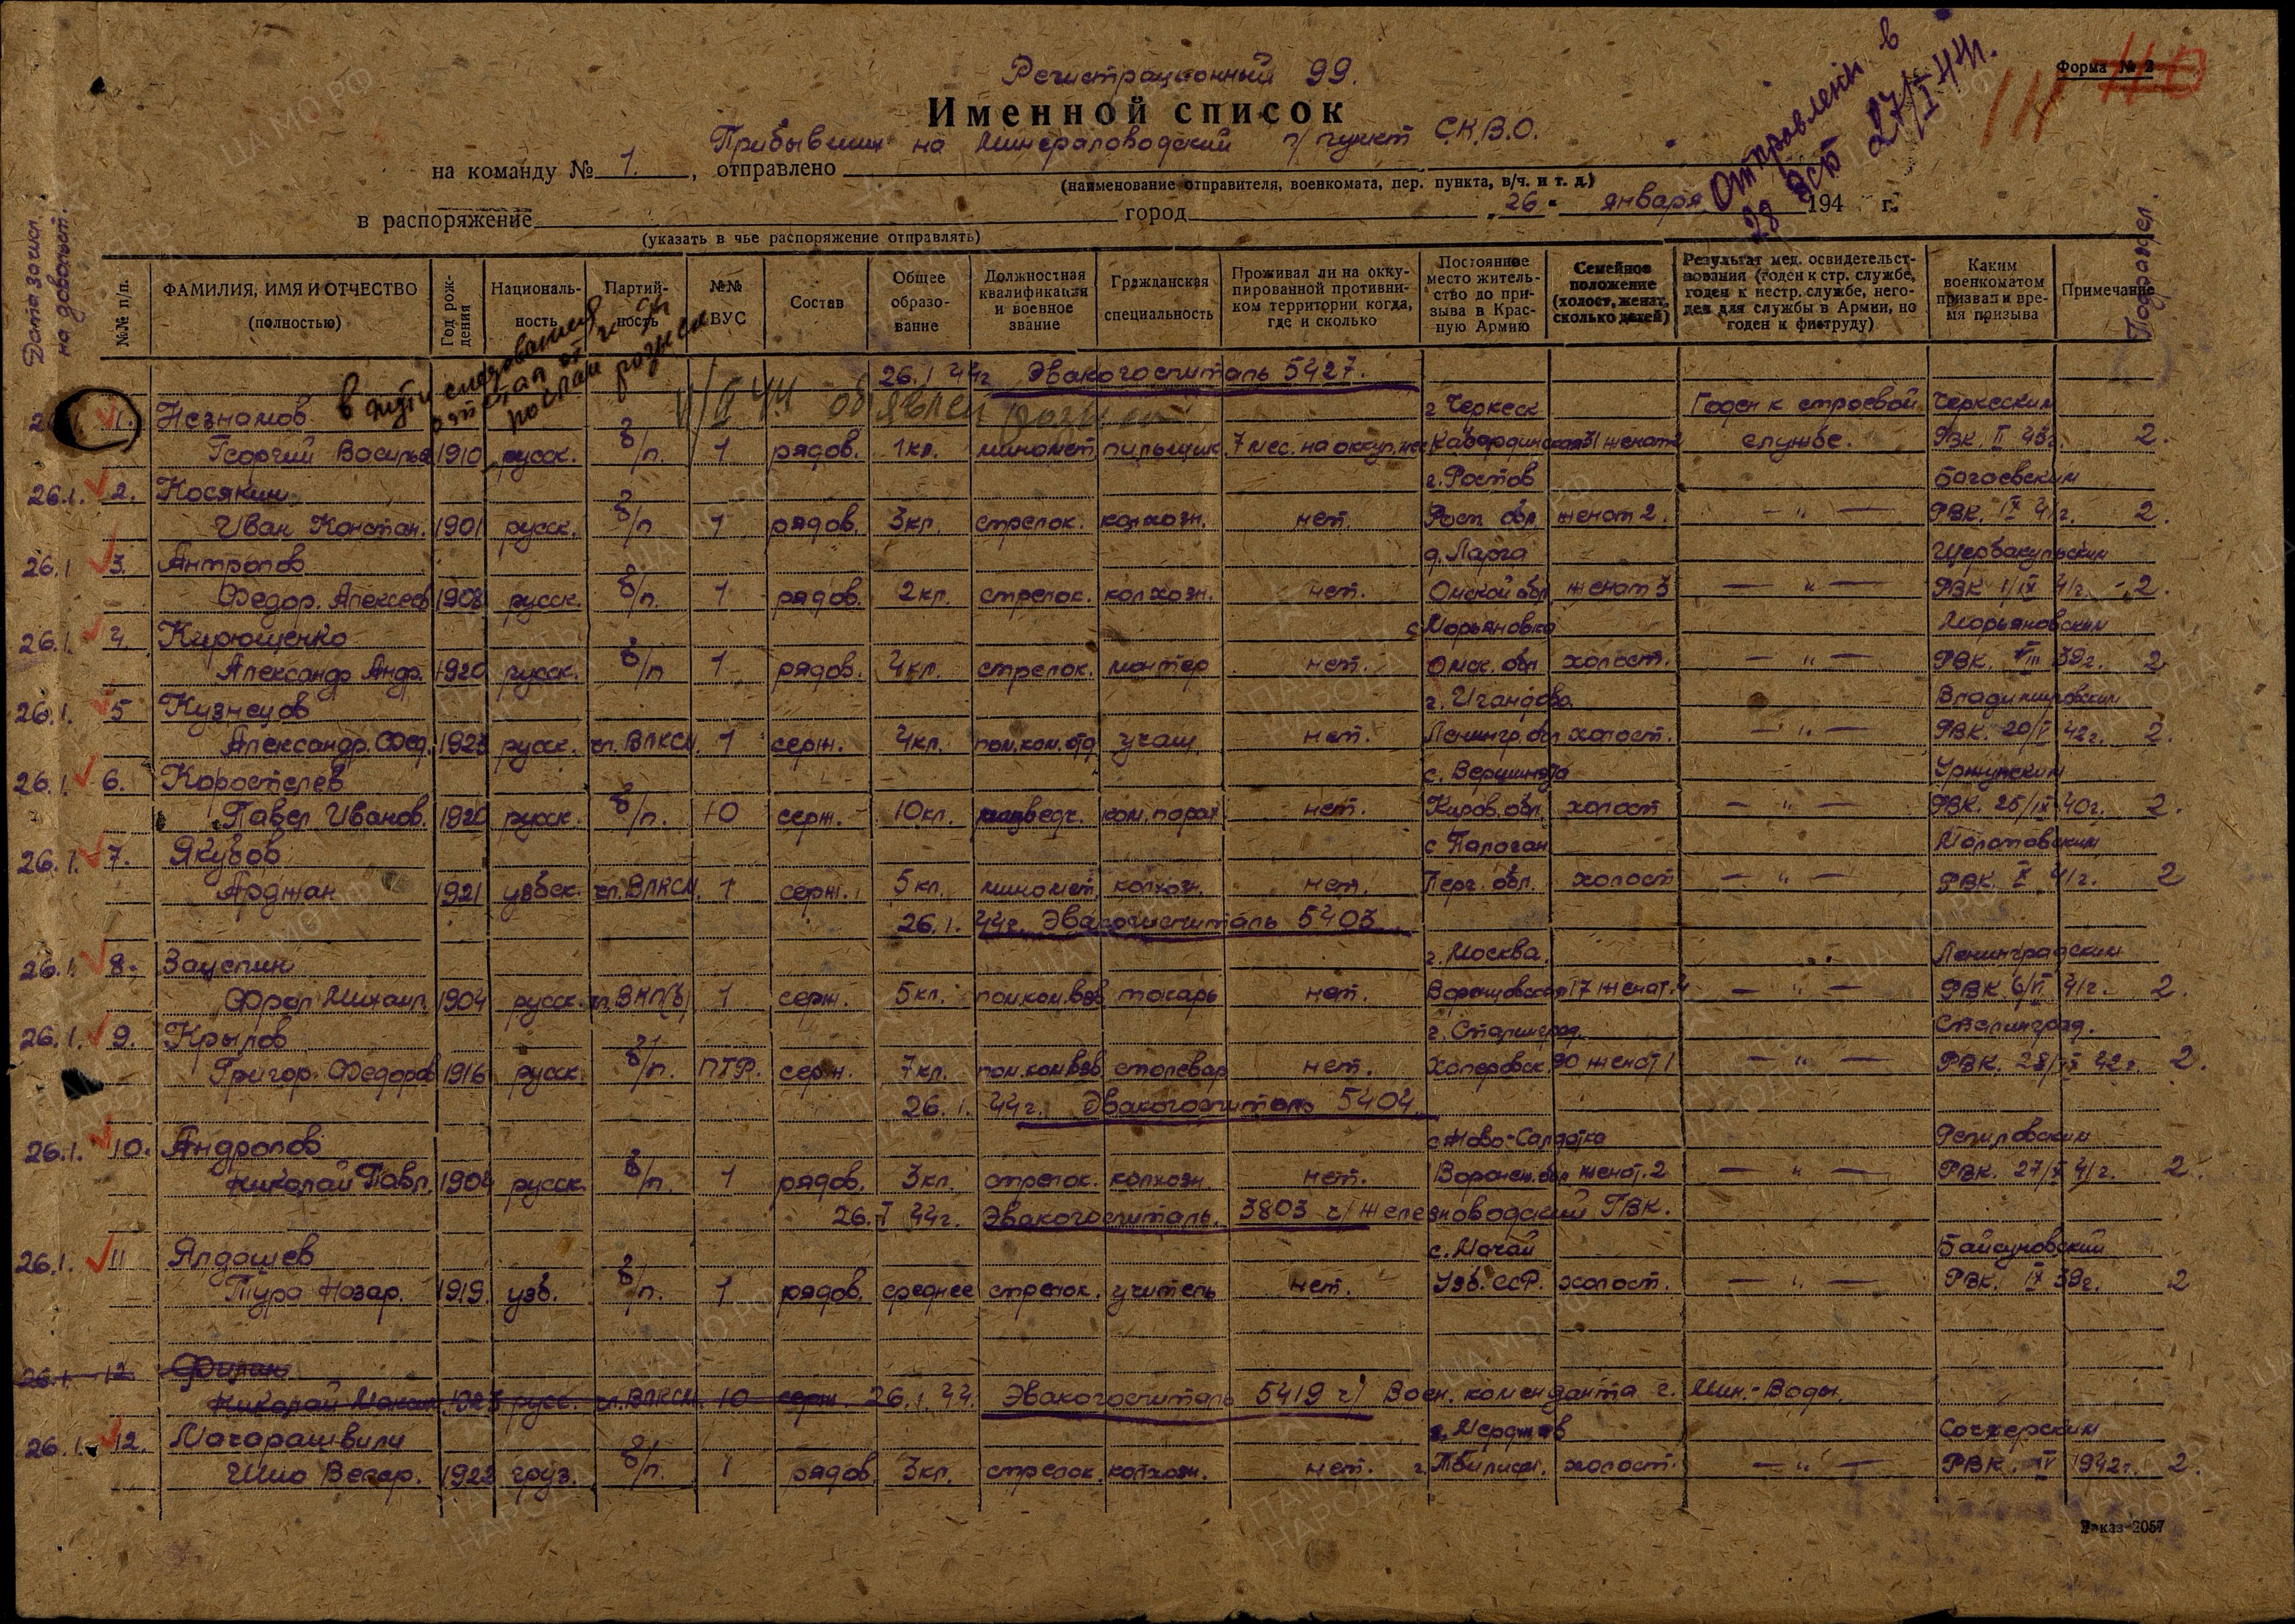 Регистрационный 99.
Форма № 2
Именной список
Прибывших на Минераловодский п/пункт С.К.В.О.
на команду № 1. , отправлено
(наименование отправителя, военкомата, пер. пункта, в/ч. и т. д.)
в распоряжение город „26" января 194 г.
(указать в чье распоряжение отправлять)
Отправлен в
28 зсп 27/I 44г.
Дата зачисл. на довольст.
№№ п/п.
ФАМИЛИЯ, ИМЯ И ОТЧЕСТВО (полностью)
Год рождения
Национальность
Партийность
№№ ВУС
Состав
Общее образование
Должностная квалификация и военное звание
Гражданская специальность
Проживал ли на оккупированной противником территории когда, где и сколько
Постоянное место жительство до призыва в Красную Армию
Семейное положение (холост, женат, сколько детей)
Результат мед. освидетельствования (годен к стр. службе, годен к нестр. службе, негоден для службы в Армии, но годен к физтруду)
Каким военкоматом призван и время призыва
Примечание
Подраздел.
в пути следования
отстал от
послан розыск
26.I 44г Эвакогоспиталь 5427.
объявлен розыск
1. Незнамов г Черкесск Годен к строевой Черкесским
Георгий Василье 1910 русск. б/п. 1 рядов. 1кл. миномет. пильщик 7 мес. на оккуп. Кабардинская 31 женат 2 службе. РВК. II 43г. 2.
26.1. 2. Косякин г. Ростов Богаевским
Иван Констан. 1901 русск. б/п 1 рядов. 3кл. стрелок. колхозн. нет. Рост. обл женат 2. — " — РВК. IX 41г. 2.
26.1 3. Антропов д. Ларга Щербакульским
Федор. Алексеев 1908 русск. б/п. 1 рядов. 2кл. стрелок. колхозн. нет. Омской обл женат 3 — " — РВК 1/IX 41г. 2.
26.1. 4. Кирющенко с. Марьяновка Марьяновским
Александр Андр. 1920 русск. б/п 1 рядов. 4кл. стрелок. монтер нет. Омск. обл холост. — " — РВК. VIII 39г. 2
26.1. 5 Кузнецов Владимировским
Александр. Фед. 1923 русск. чл. ВЛКСМ 1 серж. 4кл. пом.ком.отд учащ. нет. Ленингр. обл холост. — " — РВК. 20/V 42г. 2.
26.1. 6. Коростелев Уржумским
Павел Иванов. 1920 русск. б/п. 10 серж. 10кл. развед. нет. Киров. обл. холост — " — РВК. 25/IX 40г. 2.
26.1. 7. Якубов с Палоган Молотовским
Арджан 1921 узбек. чл. ВЛКСМ. 1 серж. 5кл. миномет. колхозн. нет. Ферг. обл. холост — " — РВК. X 41г. 2
26.1. 44г. Эвакогоспиталь 5403
26.1. 8. Зауспин г. Москва. Ленинградским
Фрол Михаил. 1904 русск. чл. ВКП(б) 1 серж. 5кл. пом.ком.взв токарь нет. 17 женат. 4 — " — РВК 6/VI 41г. 2.
26.1. 9. Крылов г. Сталинград. Сталинград.
Григор. Федоров 1916 русск. б/п. ПТР. серж. 7кл. пом.ком.взв сталевар нет. Хоперовск. 90 женат 1 — " — РВК. 42г. 2.
26.1. 44г. Эвакогоспиталь 5404
26.1. 10. Андропов с Ново-Солдатка Репиловским
Николай Павл. 1904 русск. б/п. 1 рядов. 3кл. стрелок. колхозн. нет. Воронеж. обл женат. 2 — " — РВК. 27/X 41г. 2.
26.I 44г. Эвакогоспиталь. 3803 ч/ железноводский ГВК.
26.1. 11 Ялдашев с. Мачай Байсуновский
Тура Назар. 1919 узб. б/п. 1 рядов. среднее стрелок. учитель нет. Узб. ССР. холост. — " — РВК. IX 39г. 2
26.1. 12 Филин
Николай Максим. 1923 русс. чл. ВЛКСМ. 10 серж. 26.1.44. Эвакогоспиталь 5419 ч/ Воен. коменданта г. Мин.-Воды.
26.1. 12. Мачарашвили Сачхерским
Шио Вегар. 1922 груз. б/п. 1 рядов. 3кл. стрелок. колхозн. нет. г. Тбилиси. холост. — " — РВК. IV 1942г. 2.
Заказ-2057